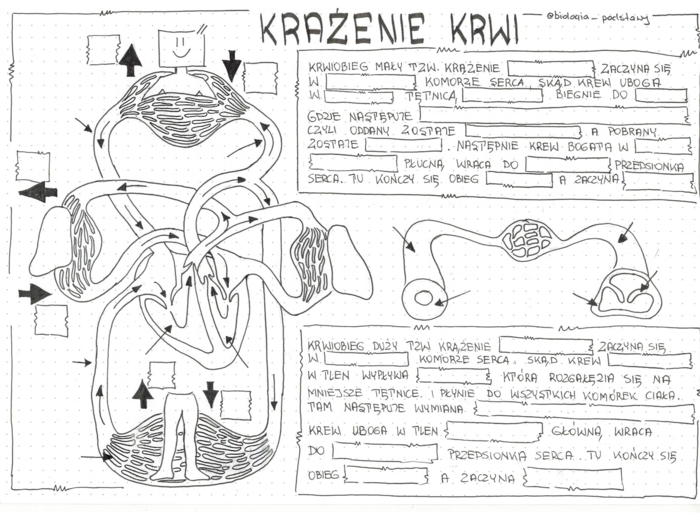 KRĄŻENIE KRWI
@biologia_podstawy
KRWIOBIEG MAŁY TZW. KRĄŻENIE ZACZYNA SIĘ
W KOMORZE SERCA, SKĄD KREW UBOGA
W TĘTNICĄ BIEGNIE DO
GDZIE NASTĘPUJE
CZYLI ODDANY ZOSTAJE A POBRANY
ZOSTAJE . NASTĘPNIE KREW BOGATA W
PŁUCNĄ, WRACA DO PRZEDSIONKA
SERCA. TU KOŃCZY SIĘ OBIEG A ZACZYNA
KRWIOBIEG DUŻY TZW KRĄŻENIE ZACZYNA SIĘ
W KOMORZE SERCA. SKĄD KREW
W TLEN WYPŁYWA KTÓRA ROZGAŁĘZIA SIĘ NA
MNIEJSZE TĘTNICE. I PŁYNIE DO WSZYSTKICH KOMÓREK CIAŁA.
TAM NASTĘPUJE WYMIANA
KREW UBOGA W TLEN GŁÓWNĄ WRACA
DO PRZEDSIONKA SERCA. TU KOŃCZY SIĘ
OBIEG A ZACZYNA